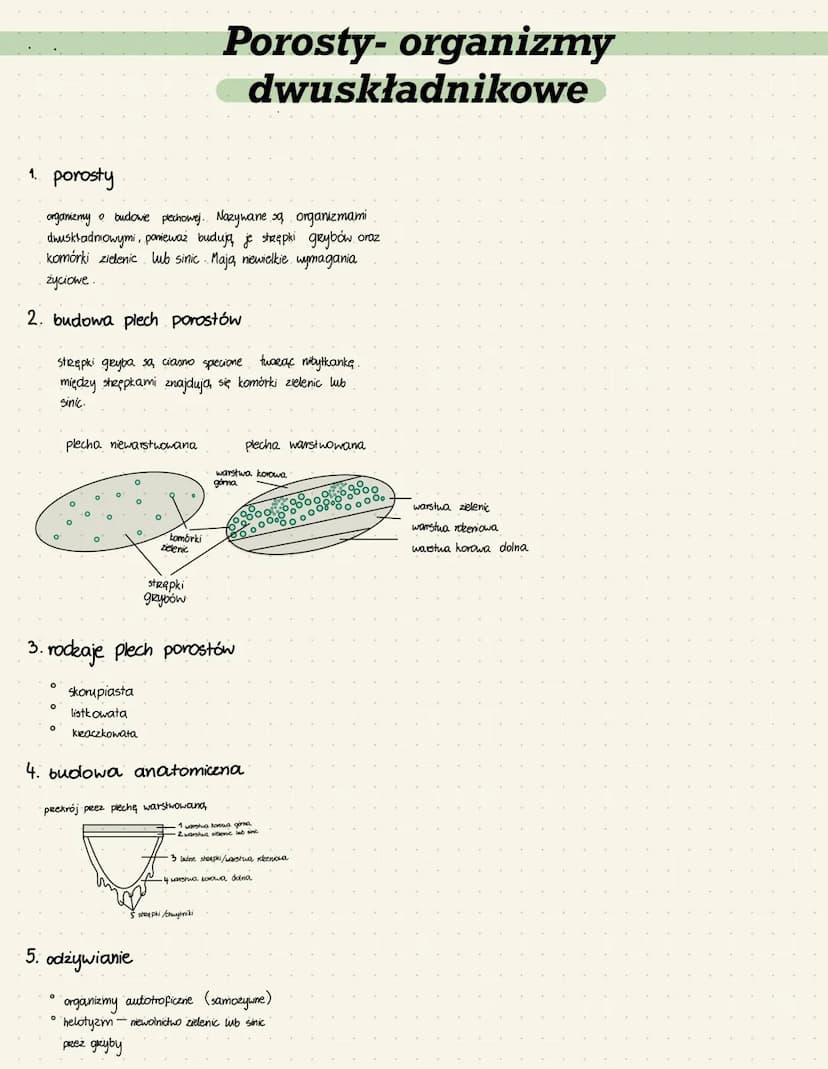 Porosty- organizmy
dwuskładnikowe
1. porosty
organizmy o budowie plechowej. Nazywane są organizmami
dwuskładniowymi, ponieważ budują je strzępki grzybów oraz
komórki zielenic lub sinic. Mają niewielkie wymagania
życiowe.
2. budowa plech porostów
strzępki grzyba są ciasno splecione tworząc nibytkankę.
między strzępkami znajdują się komórki zielenic lub
sinic.
plecha niewarstwowana plecha warstwowana
warstwa korowa
górna
warstwa zielenic
warstwa rdzeniowa
warstwa korowa dolna
komórki
zielenic
strzępki
grzybów
3. rodzaje plech porostów
° skorupiasta
° listkowata
° krzaczkowata
4. budowa anatomiczna
przekrój przez plechę warstwowaną
1 warstwa korowa górna
2 warstwa zielenic lub sinic
3 luźne strzępki/warstwa rdzeniowa
4 warstwa korowa dolna
5 strzępki /chwytniki
5. odżywianie
° organizmy autotroficzne (samożywne)
° helotyzm – niewolnictwo zielenic lub sinic
przez grzyby